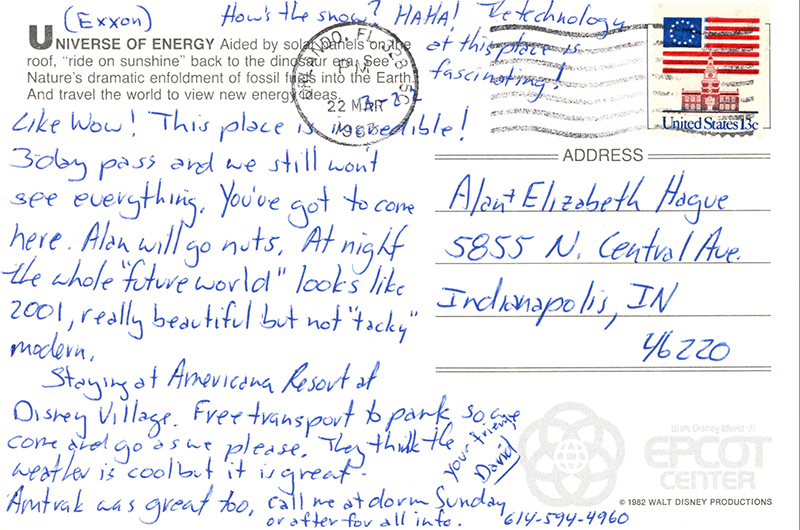 (Exxon)
How's the snow? HAHA! The technology
at this place is
fascinating!
UNIVERSE OF ENERGY Aided by solar panels on the
roof, "ride on sunshine" back to the dinosaur era. See
Nature's dramatic enfoldment of fossil fuels into the Earth.
And travel the world to view new energy ideas.
ORLANDO, FL 328
PM
22 MAR
3-22
Like Wow! This place is incredible!
3 day pass and we still won't
see everything. You've got to come
here. Alan will go nuts. At night
the whole "future world" looks like
2001, really beautiful but not "tacky"
modern.
Staying at Americana Resort at
Disney Village. Free transport to park so we
come and go as we please. They think the
weather is cool but it is great.
Amtrak was great too, call me at dorm Sunday
or after for all info. 614-594-4960
your friend
David
United States 13c
ADDRESS
Alan + Elizabeth Hague
5855 N. Central Ave.
Indianapolis, IN
46220
Walt Disney World
EPCOT
CENTER
© 1982 WALT DISNEY PRODUCTIONS